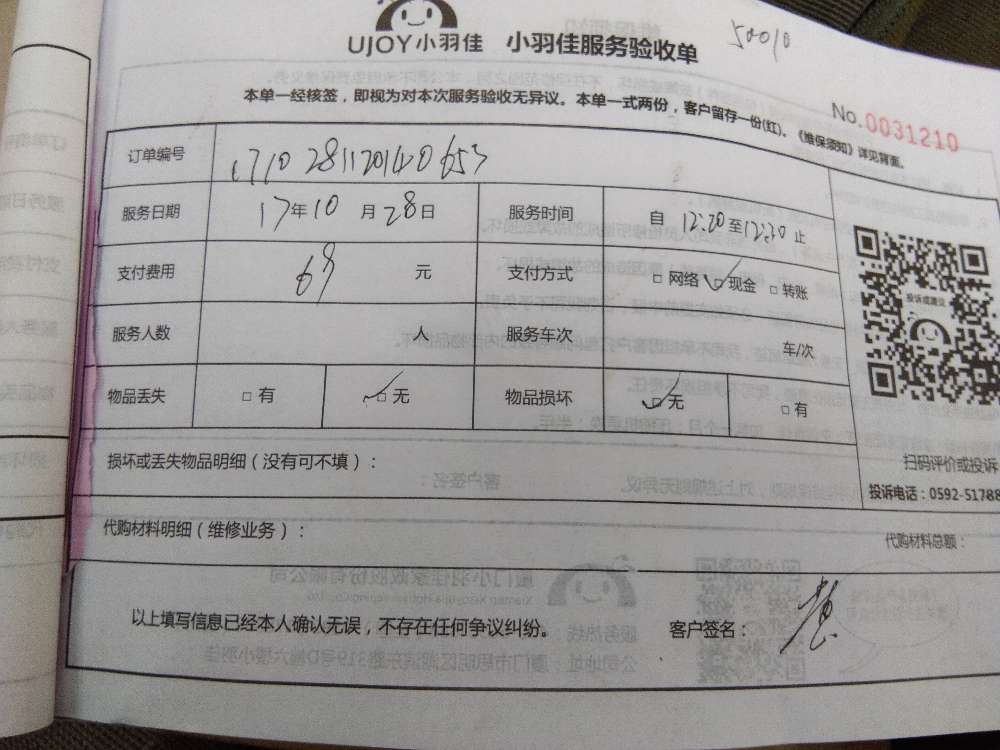 UJOY小羽佳 小羽佳服务验收单
50010
本单一经核签，即视为对本次服务验收无异议。本单一式两份，客户留存一份(红)。《维保须知》详见背面。
No.0031210
订单编号
服务日期 17年10月28日 服务时间 自 12:20至12:30止
支付费用 69 元 支付方式 □网络 □现金 □转账
服务人数 人 服务车次 车/次
物品丢失 □有 □无 物品损坏 □无 □有
投诉或建议
扫码评价或投诉
投诉电话：0592-51788
损坏或丢失物品明细（没有可不填）：
代购材料明细（维修业务）： 代购材料总额：
以上填写信息已经本人确认无误，不存在任何争议纠纷。 客户签名：